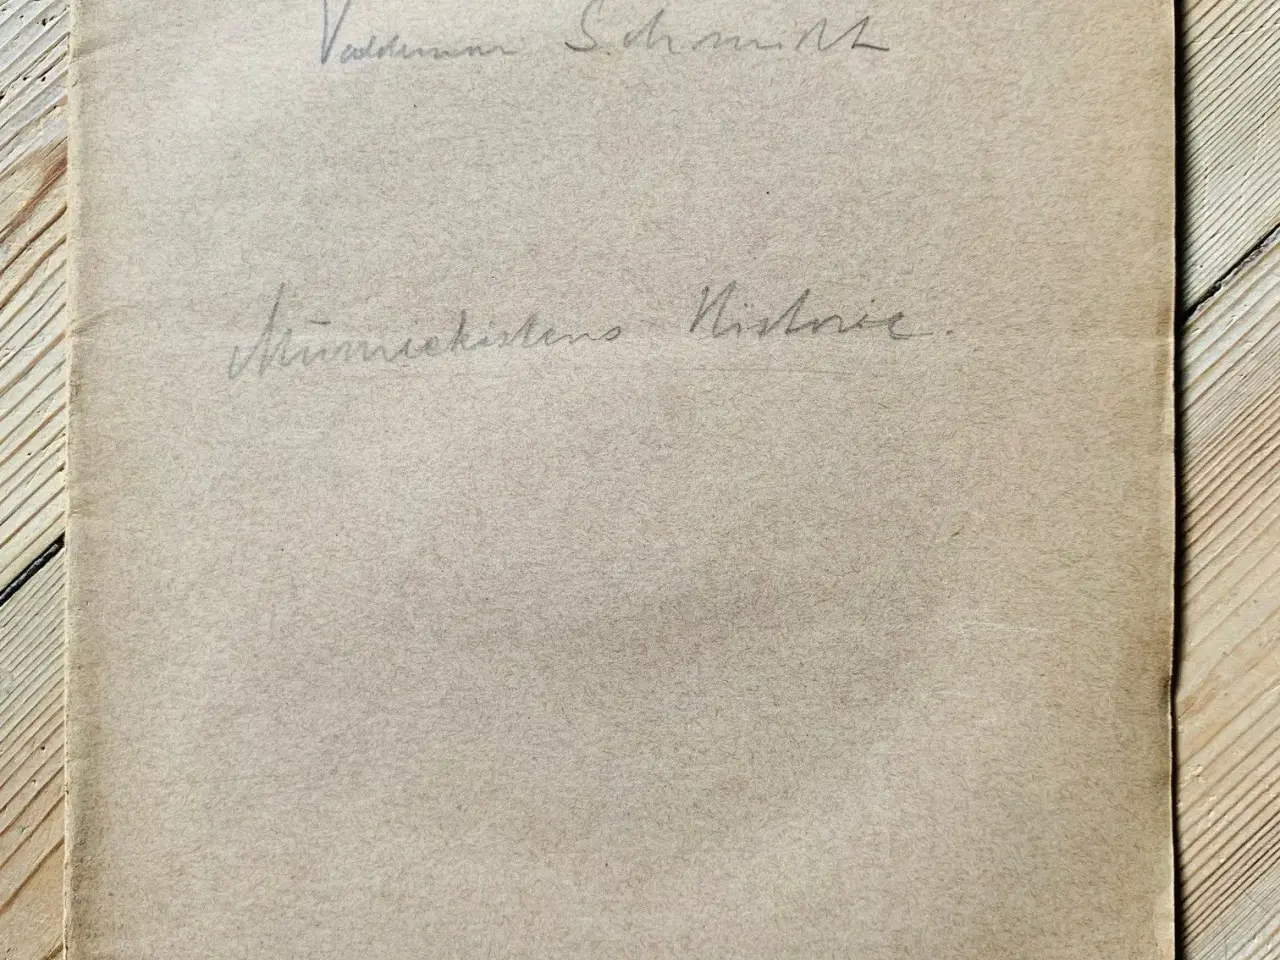 Valdemar Schmidt
Mumiekistens Historie.